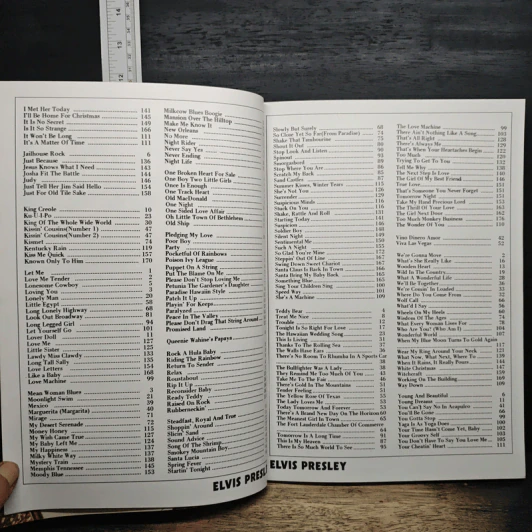 I Met Her Today 141
I'll Be Home For Christmas 145
It Is No Secret 149
Is It So Strange 166
It Won't Be Long 111
It's A Matter Of Time 111
Jailhouse Rock 6
Just Because 136
Jesus Knows What I Need 143
Joshua Fit The Battle 144
Judy 146
Just Tell Her Jim Said Hello 154
Just For Old Tike Sake 158
King Creole 10
Ku-U-I-Po 23
King Of The Whole Wide World 30
Kissin' Cousins(Number 1) 47
Kissin' Cousins(Number 2) 47
Kismet 74
Kentucky Rain 119
Kiss Me Quick 157
Known Only To Him 170
Let Me 1
Love Me Tender 2
Lonesome Cowboy 5
Loving You 5
Lonely Man 20
Little Egypt 58
Long Lonely Highway 68
Look Out Broadway 81
Long Legged Girl 94
Let Yourself Go 101
Lover Doll 11
Love Me 127
Little Sister 125
Lawdy Miss Clawdy 133
Long Tall Sally 135
Love Letters 154
Like a Baby 163
Love Machine 99
Mean Woman Blues 3
Moonlight Swim 21
Mexico 39
Marguerita (Margarita) 40
Mirage 71
My Desert Serenade 72
Money Honey 115
My Wish Came True 127
My Baby Left Me 124
My Happiness 137
Milky White Way 137
Mystery Train 138
Memphis Tennessee 145
Moody Blue 153
Milkcow Blues Boogie
Mansion Over The Hilltop
Make Me Know It
New Orleans
No More
Night Rider
Never Say Yes
Never Ending
Night Life
One Broken Heart For Sale
One Boy Two Little Girls
Once Is Enough
One Track Heart
Old MacDonald
One Night
One Sided Love Affair
Oh Little Town Of Bethlehem
Old Shep
Pledging My Love
Poor Boy
Party
Pocketful Of Rainbows
Poison Ivy League
Puppet On A String
Put The Blame On Me
Please Don't Stop Loving Me
Petunia The Gardener's Daughter
Paradise Hawaiin Style
Patch It Up
Playin' For Keeps
Paralyzed
Peace In The Valley
Please Don't Drag That String Around
Promised Land
Queenie Wahine's Papaya
Rock A Hula Baby
Riding The Rainbow
Return To Sender
Relax
Roustabout
Rip It Up
Reconsider Baby
Ready Teddy
Raised On Rock
Rubberneckin'
Steadfast, Loyal And True
Shoppin' Around
Slicin' Sand
Sound Advice
Song Of The Shrimp
Smokey Mountain Boy
Santa Lucia
Spring Fever
Startin' Tonight
ELVIS PRESL
Slowly But Surely 68
So Close Yet So Far(From Paradise) 74
Shake That Tambourine 75
Shout It Out 80
Stop Look And Listen 90
Spinout 93
Smorgasbord 89
Stop Where You Are 86
Scratch My Back 85
Sand Castles 87
Summer Kisses, Winter Tears 115
She's Not You 126
Surrender 128
Suspicious Minds 116
Stuck On You 116
Shake, Rattle And Roll 131
Starting Today 141
Suspicion 146
Soldier Boy 148
Silent Night 149
Sentimental Me 150
Such A Night 155
So Glad You're Mine 172
Steppin' Out Of Line 167
Swing Down Sweet Chariot 167
Santa Claus Is Back In Town 166
Santa Bring My Baby Back 165
Something Blue 163
Sing You Children Sing 100
Speed Way 101
She's A Machine 109
Teddy Bear 4
Treat Me Nice 8
Trouble 12
Tonight Is So Right For Love 17
The Hawaiian Wedding Song 23
This Is Living 31
Thanks To The Rolling Sea 37
The Walls Have Ears 36
There's No Room To Rhumba In A Sports Car
The Bullfighter Was A Lady 38
They Remind Me Too Much Of You 43
Take Me To The Fair 46
There's Gold In The Mountains 51
Tender Feeling 51
The Yellow Rose Of Texas 53
The Lady Loves Me 53
Today Tomorrow And Forever 53
There's A Brand New Day On The Horizon
The Meanest Girl In Town 63
The Fort Lauderdale Chamber Of Commerce
64
Tomorrow Is A Long Time 91
This Is My Heaven 87
There Is So Much World To See 93
The Love Machine 99
There Ain't Nothing Like A Song 103
That's All Right 128
There's Always Me 129
That's When Your Heartaches Begin 122
Too Much 129
Trying To Get To You 132
Tell Me Why 138
The Next Step Is Love 140
The Girl Of My Best Friend 146
True Love 151
That's Someone You Never Forget 151
Tomorrow Night 151
Take My Hand Precious Lord 153
The Thrill Of Your Love 162
The Girl Next Door 162
Too Much Monkey Business 176
The Wonder Of You 110
Vino Dinero Amor 42
Viva Las Vegas 52
We're Gonna Move 2
What's She Really Like 16
Wooden Heart 17
Wild In The Country 19
What A Wonderful Life 28
We'll Be Together 36
We're Comin' In Loaded 32
Where Do You Come From 33
Wolf Call 66
What'd I Say 54
Wheels On My Heels 60
Wisdom Of The Ages 73
What Every Woman Lives For 92
Who Are You? (Who Am I?) 104
Wonderful World 105
When My Blue Moon Turns To Gold Again
Wear My Ring Around Your Neck 127
What Now, What Next, Where To 139
When It Rains, It Really Pours 155
White Christmas 147
Witchcraft 159
Working On The Building 169
Way Down 109
Young And Beautiful 6
Young Dreams 11
You Can't Say No In Acapulco 41
You'll Be Gone 66
You Gotta Stop 99
Yoga Is As Yoga Does 100
Your Time Hasn't Come Yet, Baby 102
Your Groovy Self 103
You Don't Have To Say You Love Me 105
Your Cheatin' Heart 111
ELVIS PRESLEY